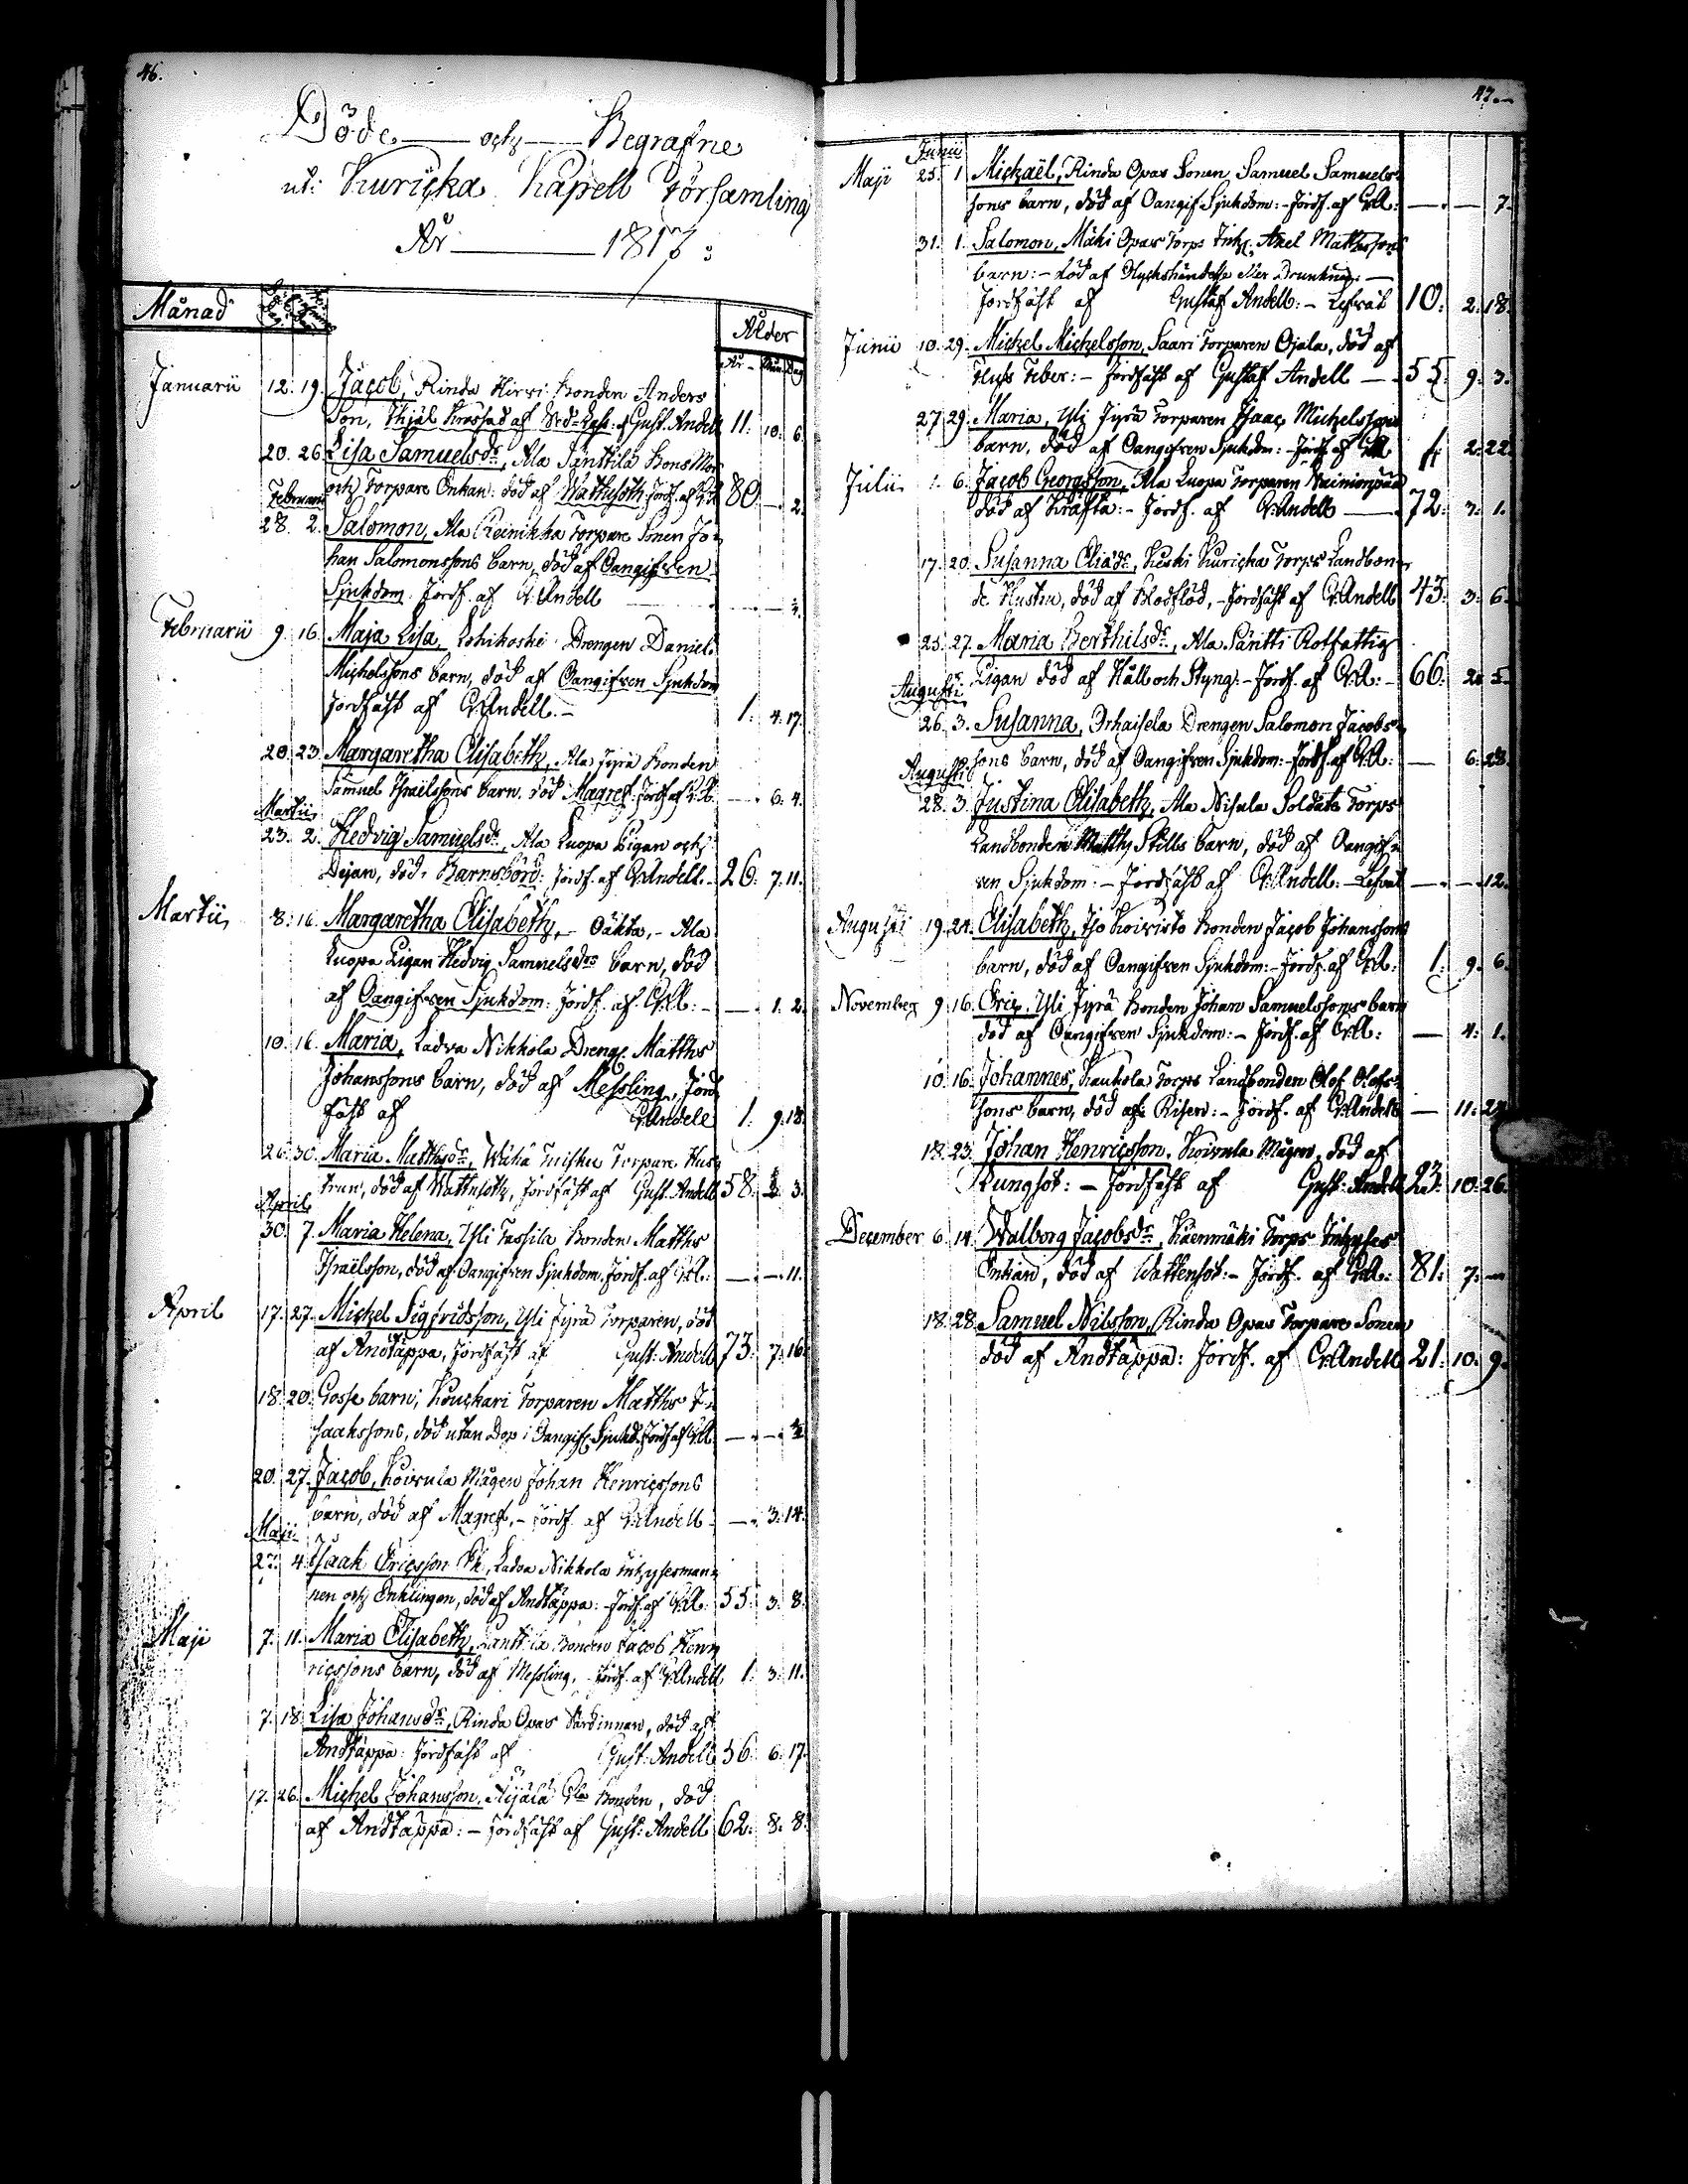 46.
Döde och Begrafne
uti Kuricka Kapell Församling
År 1817:
Månad Ålder
År Mån Dag
Januarii 12. 19. Jacob, Rinda Hirvi Bonden Anders
Son, Ihjäl Krossad af Gust. Andell 11. 10. 6.
20. 26. Lisa Samuelsdr, Ala Jänttilä Bons Mor
och Torpare Enkan. död af Wattusoth. Jordf. af 80. — 2.
Februarii
28. 2. Salomon, Ala Reinikka Torpare Sonen Jo-
han Salomonssons barn, död af Oangifven
Sjukdom. Jordf. af G:Andell
Februarii 9. 16. Maja Lisa, Lohikoski Drengen Daniel
Michelssons barn, död af Oangifven Sjukdom
Jordfäst af G:Andell. 1. 4. 17.
20. 23. Margaretha Elisabeth, Ala Jyrä Bonden
Samuel Israëlssons barn. död Magref. Jordf. af G:A. — 6. 4.
Martii
23. 2. Hedvig Samuelsdr, Ala Luopa Pigan och
Dejan, död. Barnsbörd: Jordf. af G:Andell. 26. 7. 11.
Martii 8. 16. Margaretha Elisabeth, Oäkta, Ala
Luopa Pigan Hedvig Samuelsdrs barn, död
af Oangifven Sjukdom: Jordf. af G:A: — 1. 2.
10. 16. Maria, Ladva Nikkola Dreng: Matths
Johanssons barn, död af Messling, Jord
fäst af G:Andell 1. 9. 18.
26. 30. Maria Matthsdr, Torpare Hus-
trun, död af Wattusoth, Jordfäst af Gust. Andell 58. 3.
April
30. 7. Maria Helena, Yli Tassila Bonden Matths
Israëlsson, död af Oangifven Sjukdom. Jordf. af G:A: — — 11.
April 17. 27. Michel Sigfridsson, Yli Jyrä Torparen, död
af Andtäppa, Jordfäst af Gust: Andell 73. 7. 16.
18. 20. Gosse barn, Kouckari Torparen Matths I-
saakssons, död utan Dop i Oangif: Sjukd. Jordf. af G:A — —
20. 27. Jacob, Koivula Mågen Johan Henricssons
barn, död af Magref, — Jordf. af G:Andell — 3. 14.
Maji
27. 4. Isaak Ericsson, Ladva Nikkola Inhysesman-
nen och Enklingen, död af Andtäppa: Jordf. af G:A: 55. 3. 8.
Maji 7. 11. Maria Elisabeth, Bonden Jacob Hen-
ricssons barn, död af Messling, Jordf. af G:Andell 1. 3. 11.
7. 18. Lisa Johansdr, Rinda Opas Värdinnan, död af
Andtäppa: Jordfäst af Gust: Andell 56. 6. 17.
17. 26. Michel Johansson, Bonden, död
af Andtäppa: — Jordfäst af Gust: Andell 62. 8. 8.
47.
Junii
Maji 25. 1. Michaël, Rinda Opas Sonen Samuel Samuels-
sons barn, död af Oangif: Sjukdom: — Jordf. af G:A: — — 7.
31. 1. Salomon, Mäki Opas Torps Inh: Axel Mattssons
barn: — död af Olyckshändelse eller Drunkning: —
Jordfäst af Gustaf Andell: — 10. 2. 18.
Junii 10. 29. Michel Michelsson, Saari Torparen Ojala, död af
Feber: — Jordfäst af Gustaf Andell — 55. 9. 3.
27. 29. Maria, Yli Jyrä Torparen Isaac Michelssons
barn, död af Oangifven Sjukdom: — Jordf. af G:A 2. 22.
Julii 1. 6. Jacob Georgsson, Ala Luopa Torparen Vainionpää
död af Kräfta: — Jordf. af G:Andell — 72. 3. 1.
17. 20. Susanna Eliædr, Keski Kuricka Torps Landbon-
de Hustru, död af Blodflöd, — Jordfäst af G:Andell 43. 3. 6.
25. 27. Maria Berthilsdr, Ala Säntti Rotfattig
Pigan död af Håll och Styng: — Jordf. af G:A: — 66. 2. 5.
Augusti
26. 3. Susanna, Orhaisela Drengen Salomon Jacobs-
sons barn, död af Oangifven Sjukdom: — Jordf. af G:A: — 6. 28.
Augusti
28. 3. Justina Elisabeth, Ala Nisula Soldats Torps
Landbonden Matths Stills barn, död af Oangif-
ven Sjukdom: — Jordfäst af G:Andell: — — 12.
Augusti 19. 24. Elisabeth, Iso Koivisto Bonden Jacob Johanssons
barn, död af Oangifven Sjukdom: — Jordf. af G:A: 1. 9. 6.
November 9. 16. Eric, Yli Jyrä Bonden Johan Samuelssons barn
död af Oangifven Sjukdom: — Jordf. af G:A: — 4. 1.
10. 16. Johannes, Kaukola Torps Landbonden Olof Olofs-
sons barn, död af Risen: — Jordf. af G:Andell — 11.
18. 23. Johan Henricsson, Koivula Mågen, död af
Lungsot: — Jordfäst af Gust: Andell 23. 10. 26.
December 6. 14. Walborg Jacobsdr, Käenmäki Torps Inhyses
Enkan, död af Wattensot: — Jordf. af G:A: 81. 7. —
18. 28. Samuel Nilsson, Rinda Opas Torpare Sonen
död af Andtäppa: Jordf. af G:Andell 21. 10. 9.